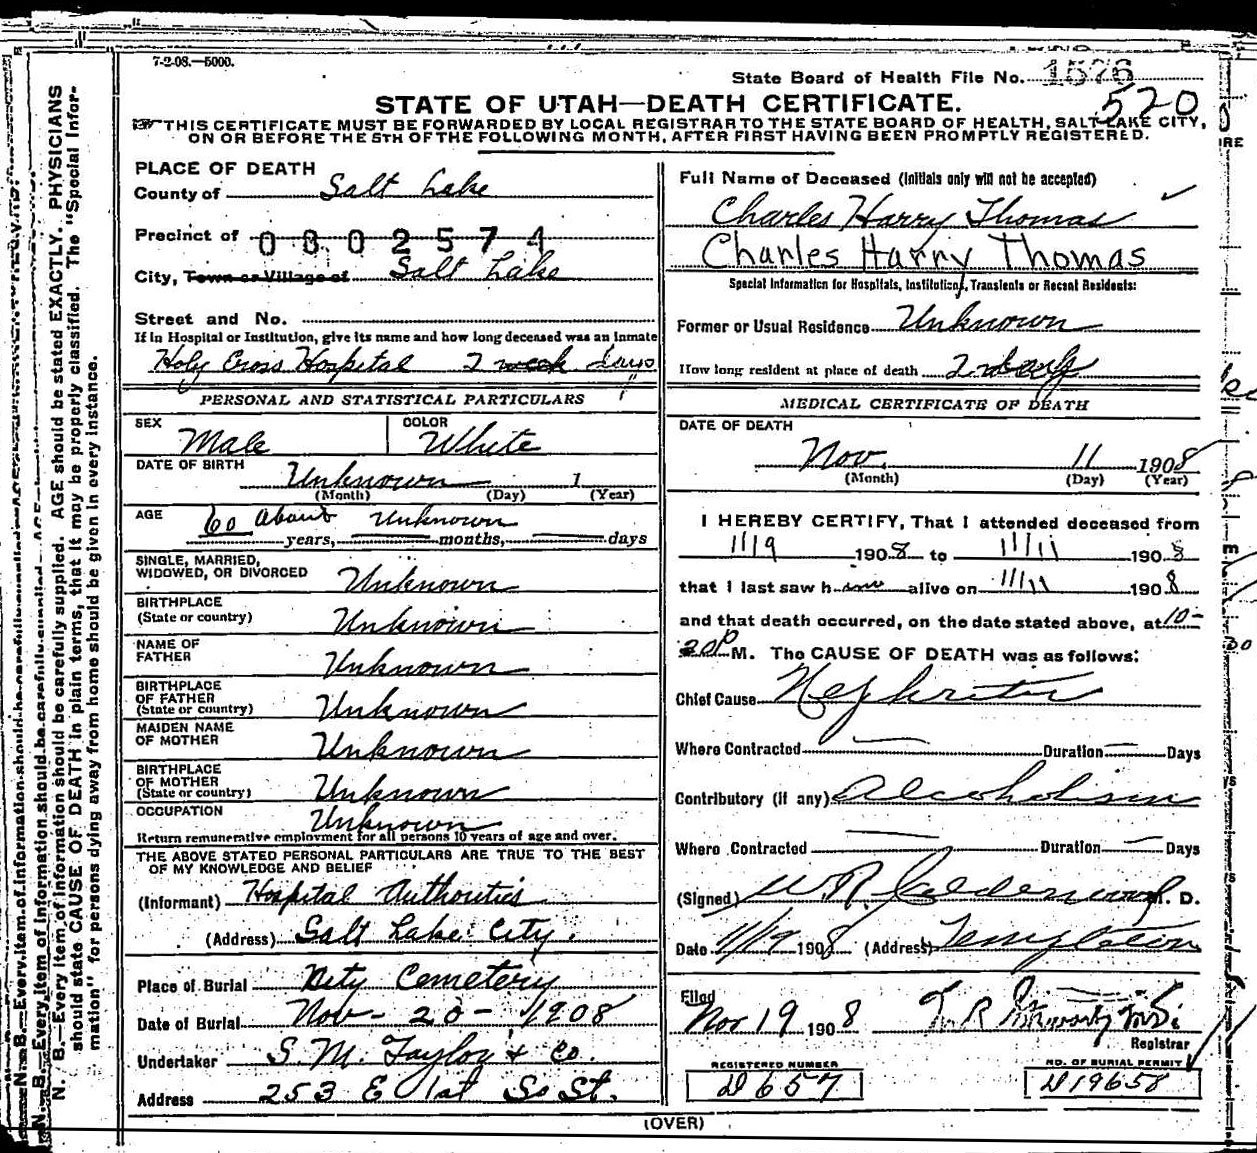 7-2-08.—5000.
State Board of Health File No. 1576
520
STATE OF UTAH—DEATH CERTIFICATE.
THIS CERTIFICATE MUST BE FORWARDED BY LOCAL REGISTRAR TO THE STATE BOARD OF HEALTH, SALT LAKE CITY,
ON OR BEFORE THE 5TH OF THE FOLLOWING MONTH, AFTER FIRST HAVING BEEN PROMPTLY REGISTERED.
N. B.—Every item of information should be carefully supplied. AGE should be stated EXACTLY. PHYSICIANS
should state CAUSE OF DEATH in plain terms, that it may be properly classified. The "Special Infor-
mation" for persons dying away from home should be given in every instance.
PLACE OF DEATH
County of Salt Lake
Precinct of 0002574
City, Town or Village of Salt Lake
Street and No.
If in Hospital or Institution, give its name and how long deceased was an inmate
Holy Cross Hospital 2 week days
PERSONAL AND STATISTICAL PARTICULARS
SEX Male
COLOR White
DATE OF BIRTH Unknown 1
(Month) (Day) (Year)
AGE 60 About Unknown
years, months, days
SINGLE, MARRIED,
WIDOWED, OR DIVORCED Unknown
BIRTHPLACE
(State or country) Unknown
NAME OF
FATHER Unknown
BIRTHPLACE
OF FATHER
(State or country) Unknown
MAIDEN NAME
OF MOTHER Unknown
BIRTHPLACE
OF MOTHER
(State or country) Unknown
OCCUPATION Unknown
Return remunerative employment for all persons 10 years of age and over.
THE ABOVE STATED PERSONAL PARTICULARS ARE TRUE TO THE BEST
OF MY KNOWLEDGE AND BELIEF
(Informant) Hospital Authorities
(Address) Salt Lake City.
Place of Burial City Cemetery
Date of Burial Nov- 20- 1908
Undertaker S. M. Taylor & Co.
Address 253 E 1st So St.
Full Name of Deceased (Initials only will not be accepted)
Charles Harry Thomas
Charles Harry Thomas
Special Information for Hospitals, Institutions, Transients or Recent Residents:
Former or Usual Residence Unknown
How long resident at place of death 2 days
MEDICAL CERTIFICATE OF DEATH
DATE OF DEATH
Nov. 11 1908
(Month) (Day) (Year)
I HEREBY CERTIFY, That I attended deceased from
11/9 1908 to 11/11 1908
that I last saw him alive on 11/11 1908
and that death occurred, on the date stated above, at 10-
20 P M. The CAUSE OF DEATH was as follows:
Chief Cause Nephritis
Where Contracted — Duration — Days
Contributory (if any) Alcoholism
Where Contracted — Duration — Days
(Signed) W. R. Calderwood M. D.
Date 11/19 1908 (Address) Templeton
Filed
Nov 19 1908
Registrar
REGISTERED NUMBER
D 657
NO. OF BURIAL PERMIT
D19658
(OVER)